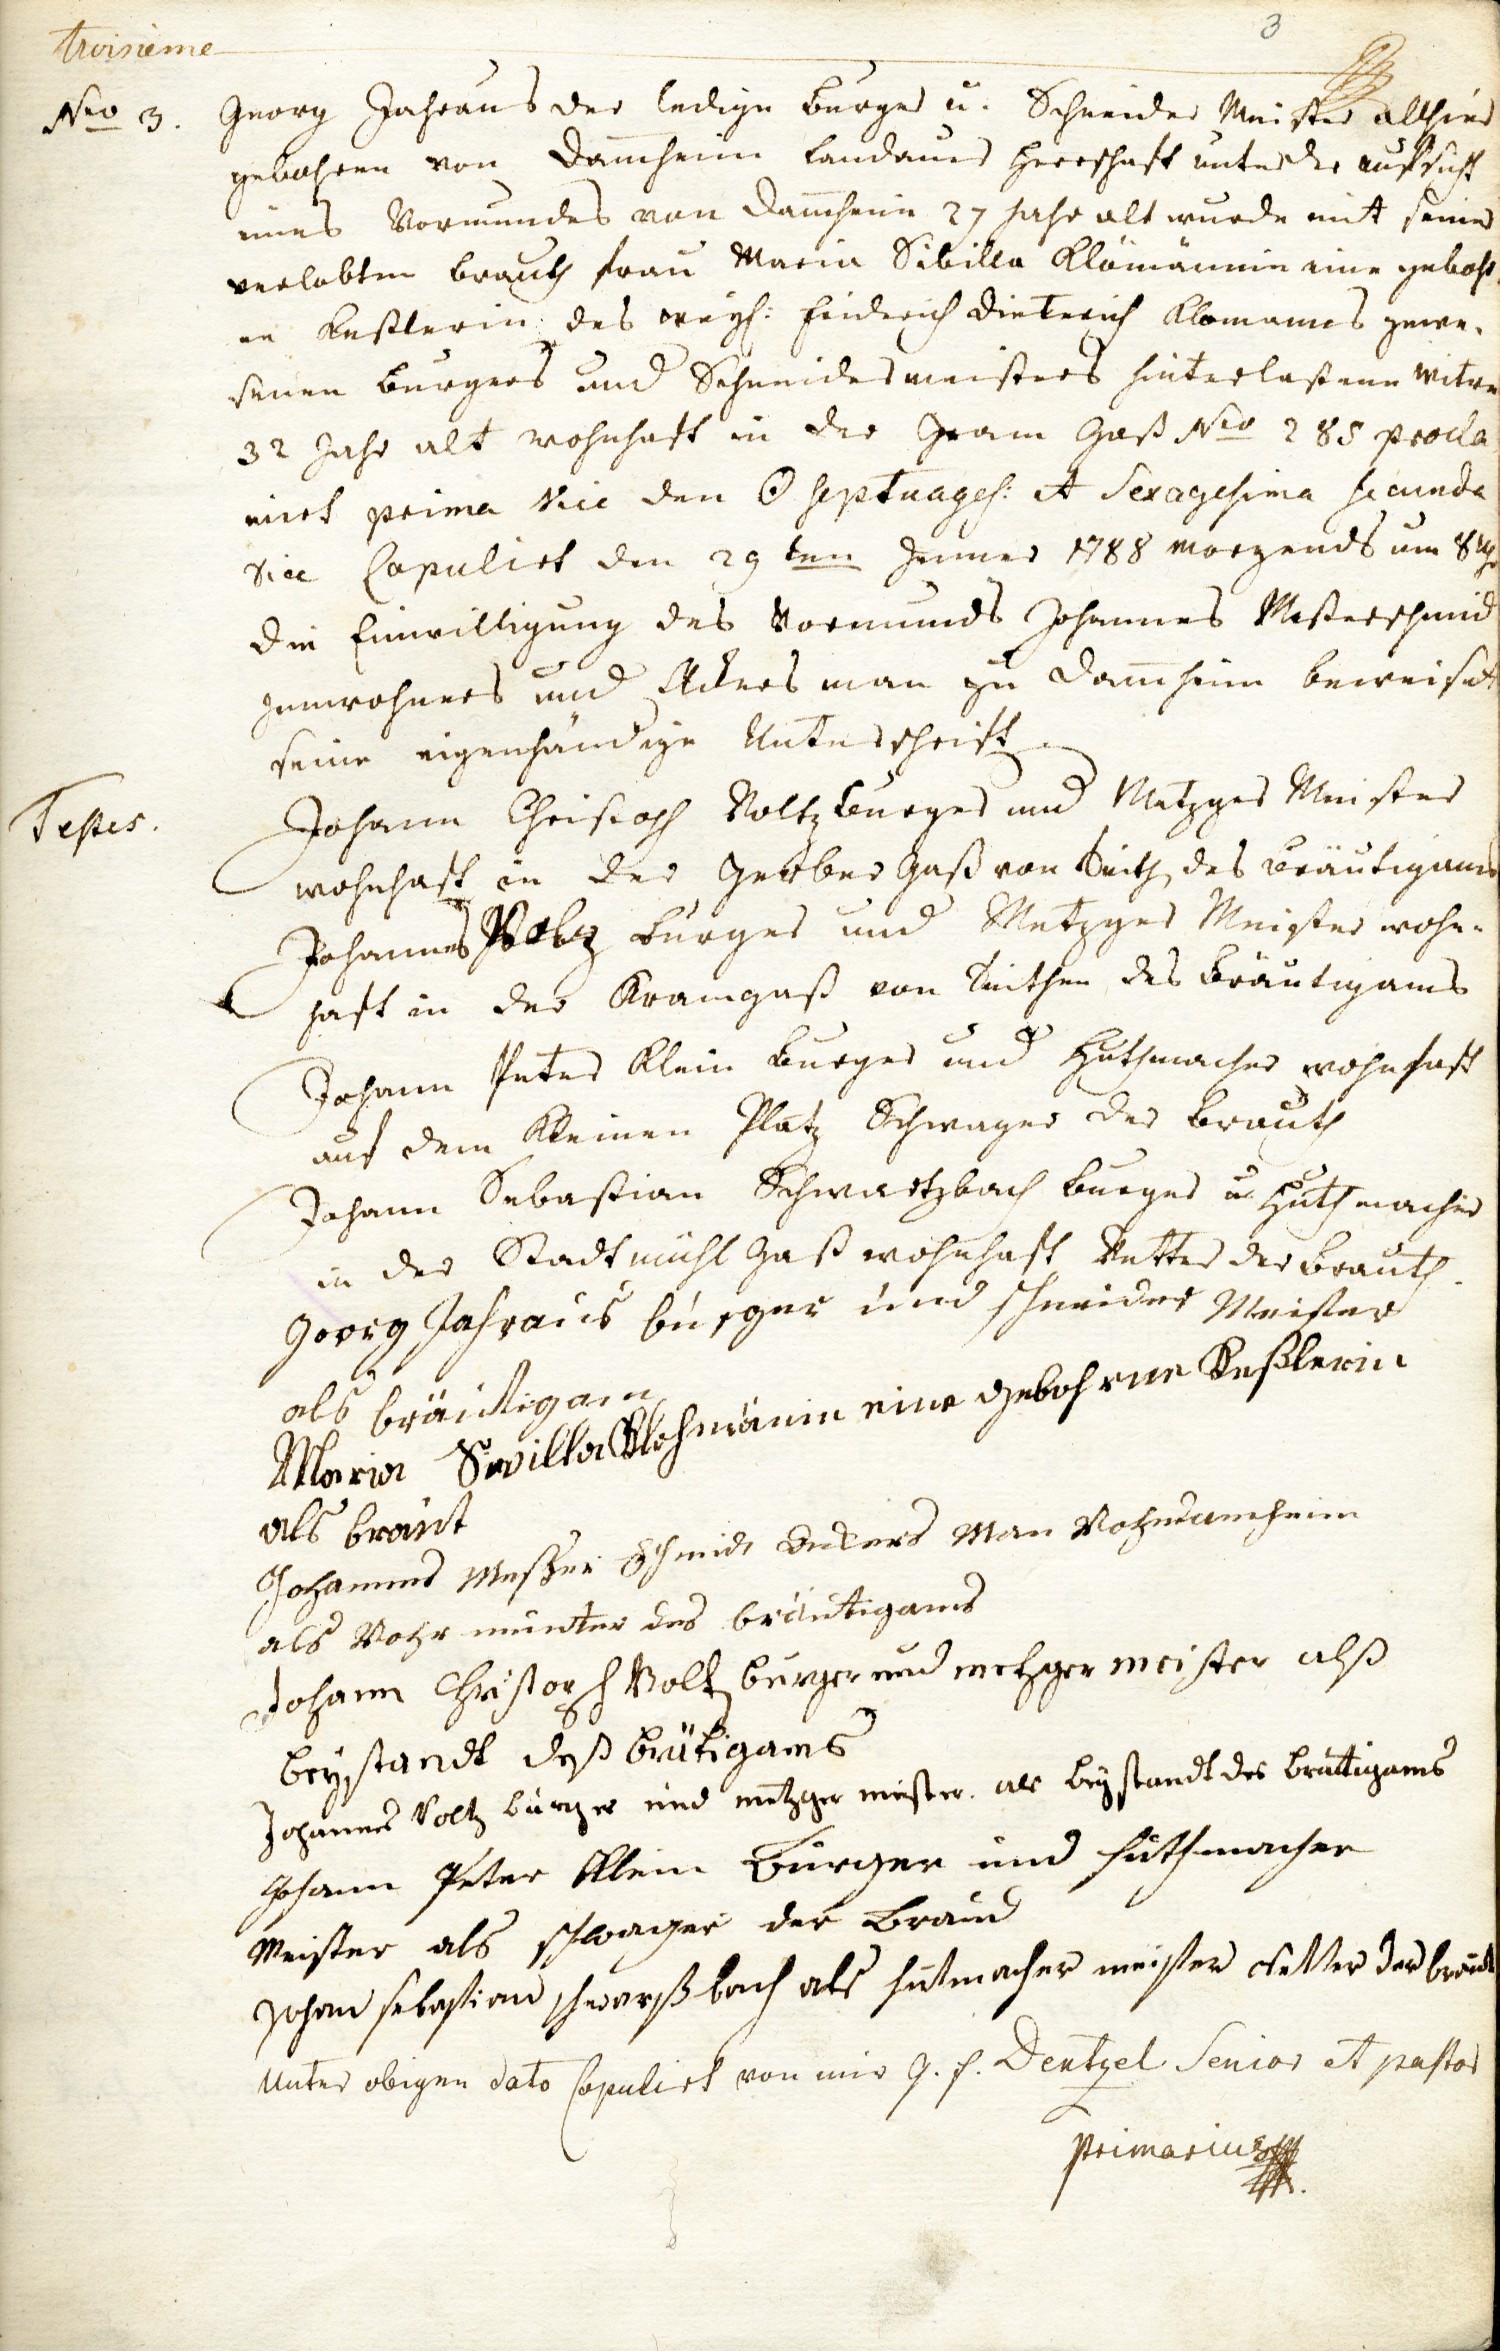 troisieme
3
Nro 3. Georg Jahraus der ledige Burger u. Schneider Meister allhier
gebohren von Dam̅heim Landauer Herrschaft unter der aufsicht
eines Vormundes von Dam̅heim 27 Jahr alt wurde mit seiner
verlobten brauth frau Maria Sibilla Klömännin eine gebohr
ne Keßlerin des weyl: Friderich Dieterich Klomanns gewe-
senen burgers und Schneidermeisters hinterlaßene Witwe
32 Jahr alt wohnhaft in der Gram Gaß Nro 285 procla
mirt prima vice den ☉ Septuages: et Sexagesima secunda
vice Copulirt den 29ten Jenner 1788 morgends um 8 Uhr
die Einwilligung des Vormunds Johannes Meßerschmid
Innwohners und Ackersman zu Dam̅heim beweiset
seine eigenhändige Unterschrift
Testes. Johann Christoph Voltz burger und Metzger Meister
wohnhaft in der Gerber Gaß von Seith des Bräutigams
Johannes Voltz burger und Metzger Meister wohn-
haft in der Kramgaß von Seithen des Bräutigams
Johann Peter Klein burger und Huthmacher wohnhaft
auf dem Kleinen Platz Schwager der Brauth
Johann Sebastian Schwartzbach burger u. Huthmacher
in der Stadtmühl Gaß wohnhaft Vetter der Brauth.
Georg Jahraus burger und schneider Meister
als bräutigam
Maria Sivilla Klohmänin eine gebohrne Keßlerin
als braut
Johannes Meßer Schmidt Ackers Man Vohn damheim
als Vohr munter des bräutigams
Johann Christoph Voltz burger und metzger meister alß
beystandt deß brütigams
Johannes Voltz burger und metzger meister. als beystandt des bräutigams
Johann Peter Klein Burger und huthmacher
Meister als schwager der Braud
Johan sebastian schwarßbach als hutmacher meister vetter der braut
Unter obigen dato Copulirt von mir G. F. Dentzel Senior et pastor
primarius